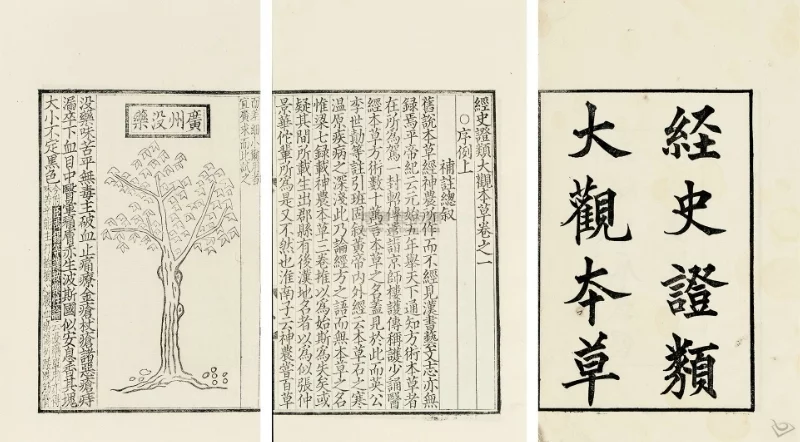 経史證類
大觀本草
經史證類大觀本草卷之一
〇序例上
補註總叙
舊說本草經神農所作而不經見漢書藝文志亦無
錄焉平帝紀云元始五年舉天下通知方術本草者
在所為駕一封軺傳遣詣京師樓護傳稱護少誦醫
經本草方術數十萬言本草之名蓋見於此而英公
李世勣等註引班固叙黃帝內外經云本草石之寒
温原疾病之深淺此乃論經方之語而無本草之名
惟梁七錄載神農本草三卷推以為始斯為失矣或
疑其間所載生出郡縣有後漢地名者以為似張仲
景華佗輩所為是又不然也淮南子云神農嘗百草
廣州没藥
没藥味苦平無毒主破血止痛療金瘡杖瘡諸惡瘡痔
漏卒下血目中瞖暈痛膚赤生波斯國似安息香其塊
大小不定黑色